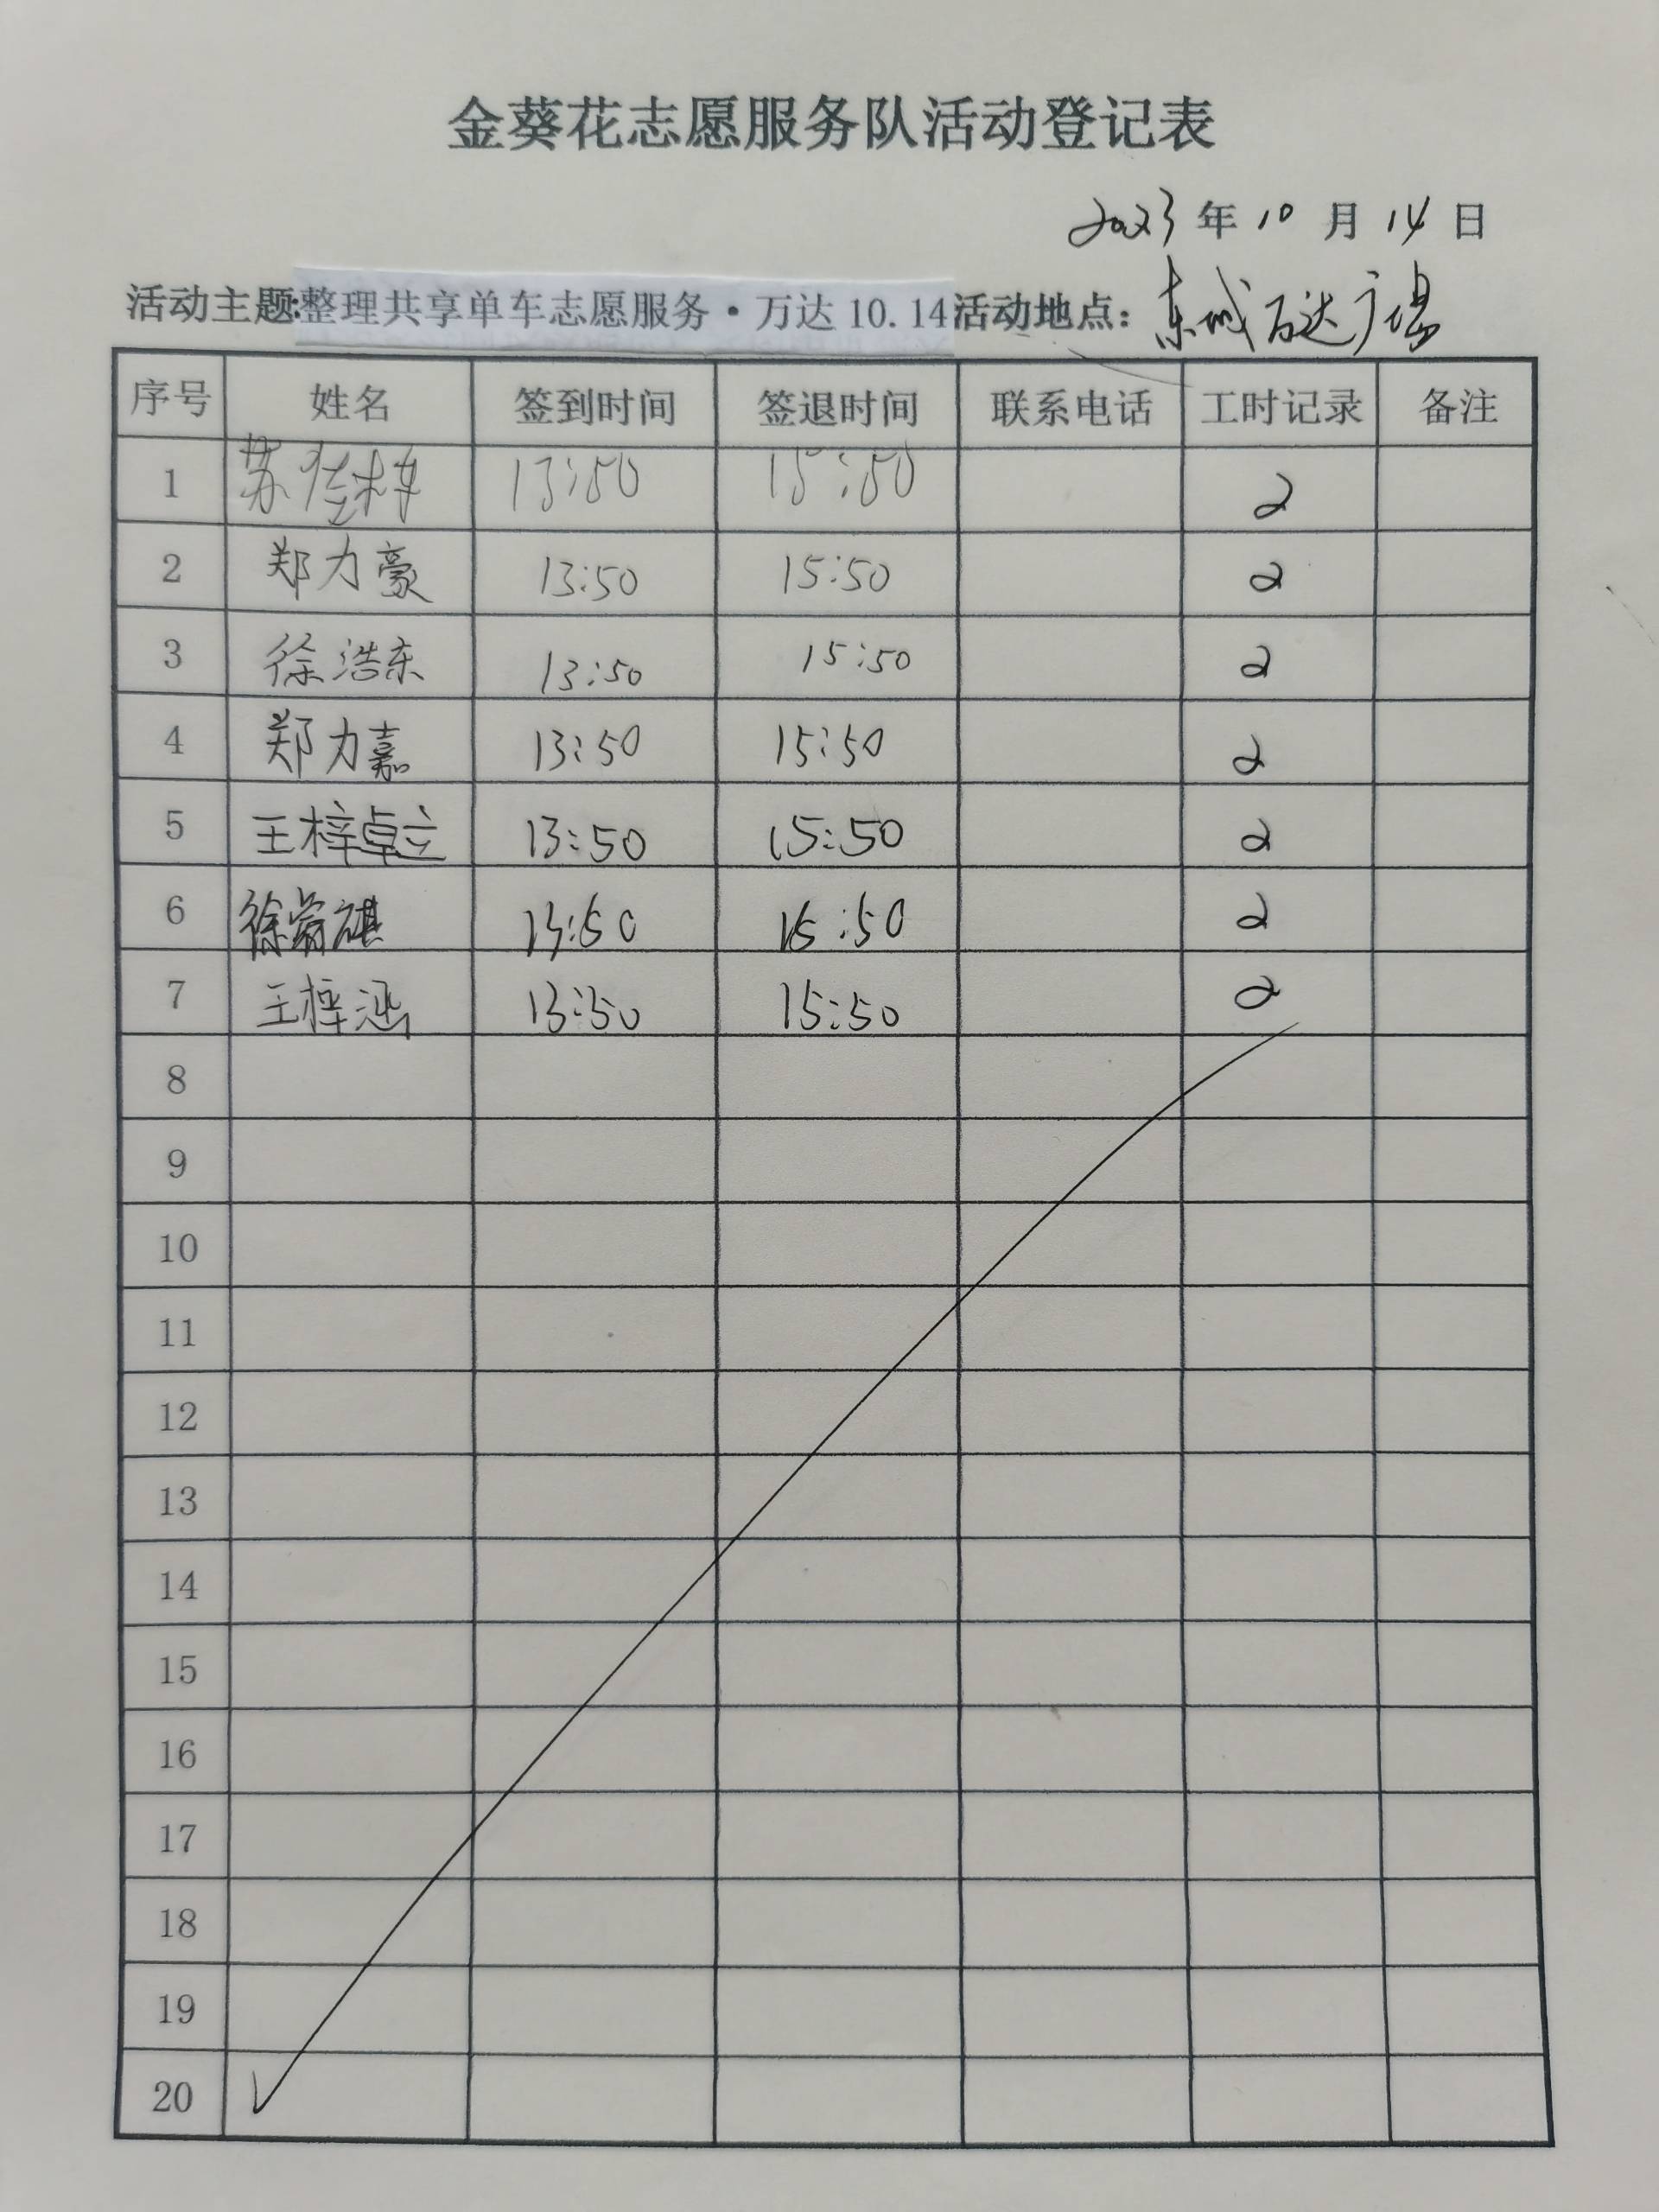 金葵花志愿服务队活动登记表
2023年10月14日
活动主题:整理共享单车志愿服务·万达10.14活动地点：东城万达广场
序号 姓名 签到时间 签退时间 联系电话 工时记录 备注
1 苏佳梓 13:50 15:50 2
2 郑力豪 13:50 15:50 2
3 徐浩东 13:50 15:50 2
4 郑力嘉 13:50 15:50 2
5 王梓 13:50 15:50 2
6 徐 13:50 15:50 2
7 王梓涵 13:50 15:50 2
8
9
10
11
12
13
14
15
16
17
18
19
20